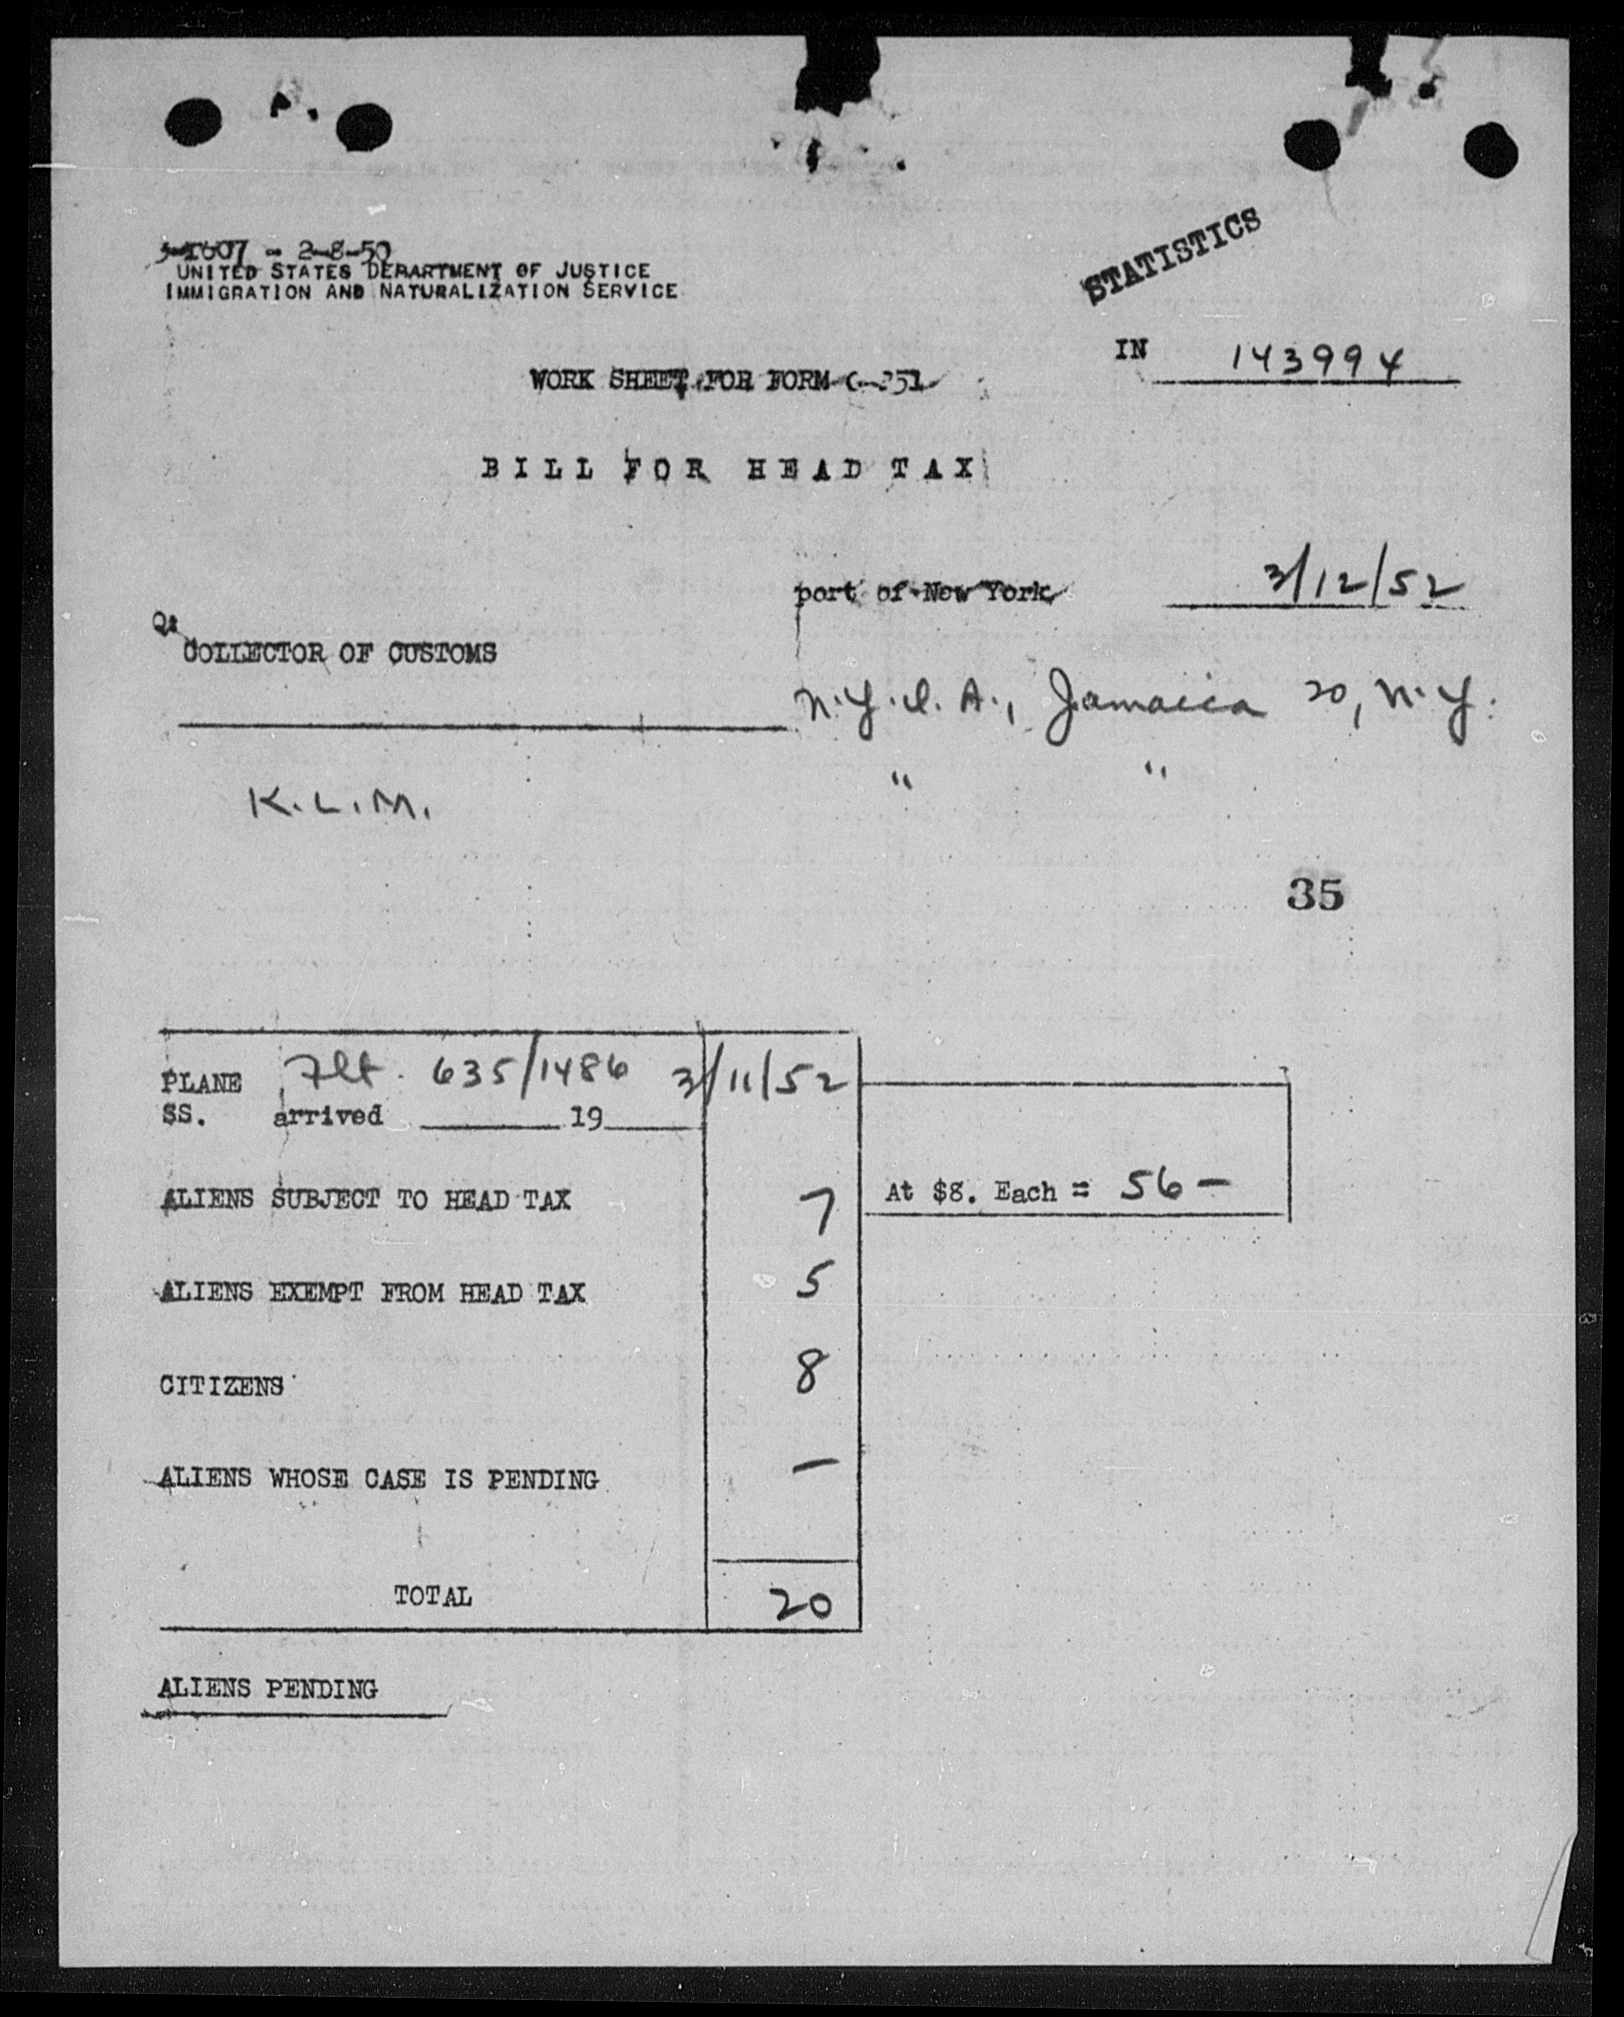 - 2-8-50
UNITED STATES DEPARTMENT OF JUSTICE
IMMIGRATION AND NATURALIZATION SERVICE
STATISTICS
IN 143994
WORK SHEET FOR FORM
BILL FOR HEAD TAX
port of New York 3/12/52
COLLECTOR OF CUSTOMS
N.Y.I.A., Jamaica 20, N.Y.
" "
K.L.M.
35
PLANE Flt. 635/1486 3/11/52
SS. arrived 19
ALIENS SUBJECT TO HEAD TAX 7 At $8. Each = 56 -
ALIENS EXEMPT FROM HEAD TAX 5
CITIZENS 8
ALIENS WHOSE CASE IS PENDING -
TOTAL 20
ALIENS PENDING